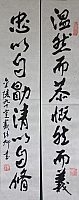 溫然而恭慨然而義
忠以自勖清以自脩